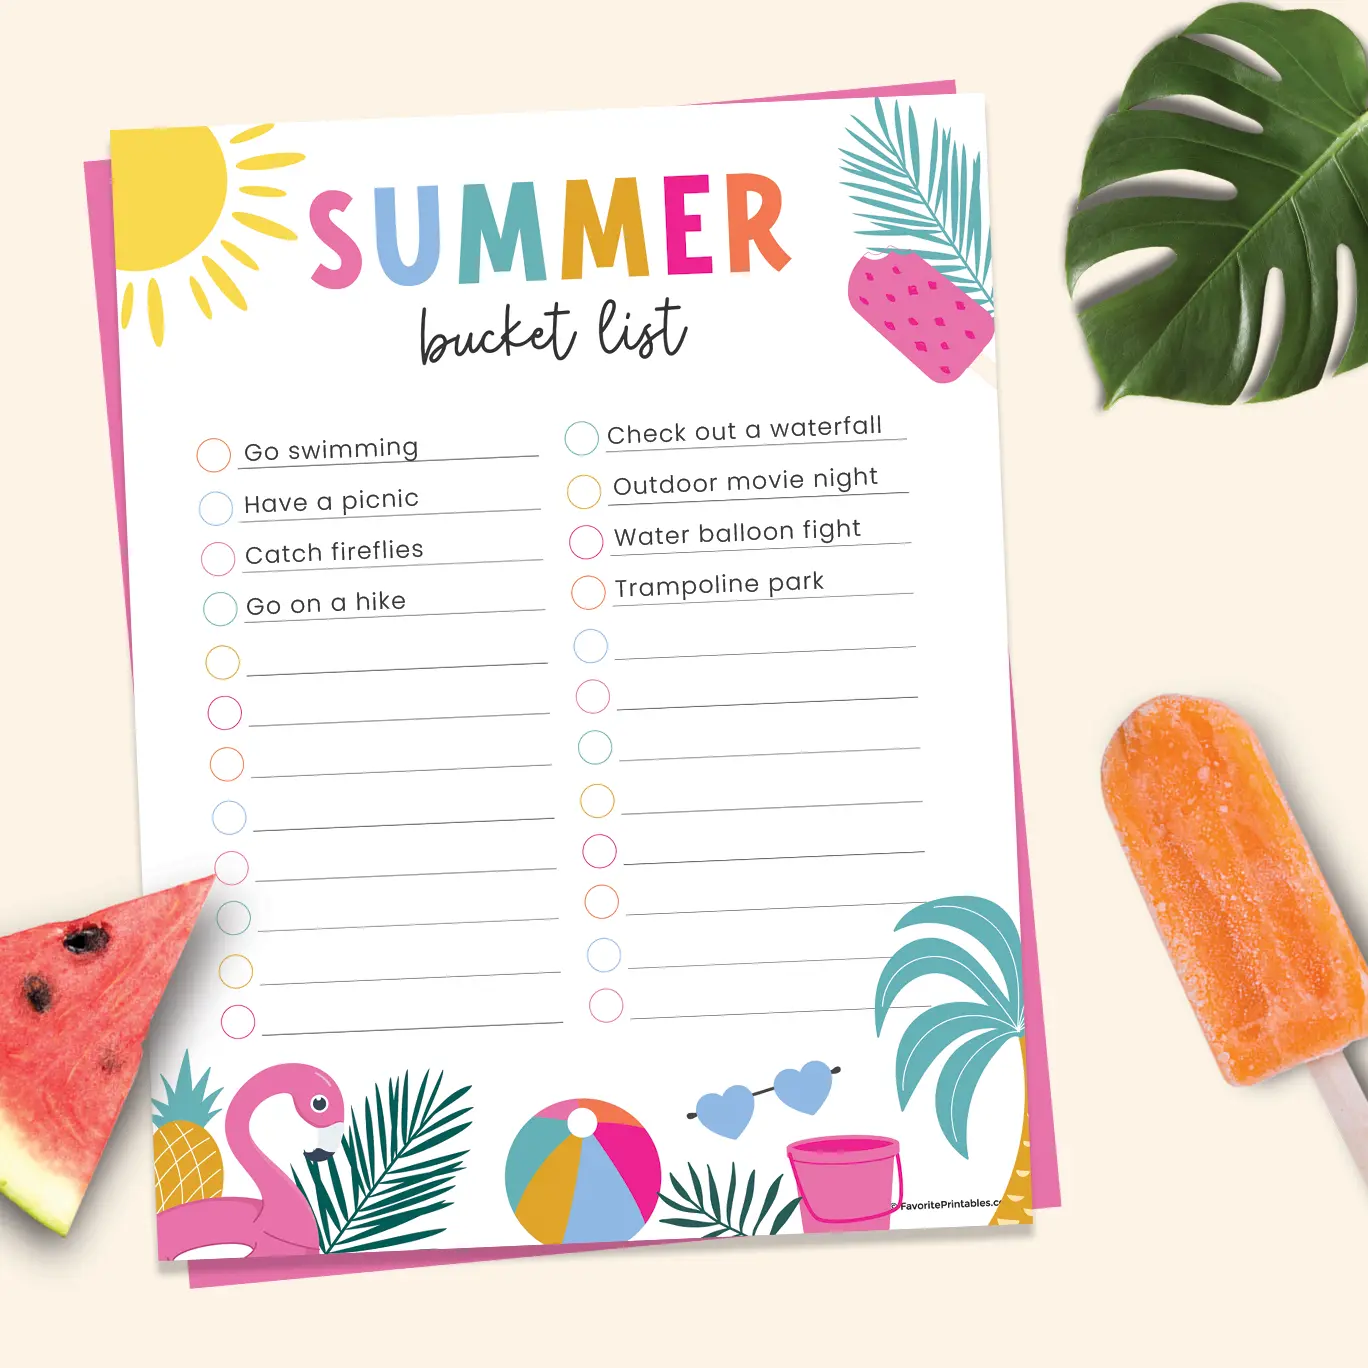 SUMMER
bucket list
Go swimming
Have a picnic
Catch fireflies
Go on a hike
Check out a waterfall
Outdoor movie night
Water balloon fight
Trampoline park
© FavoritePrintables.c